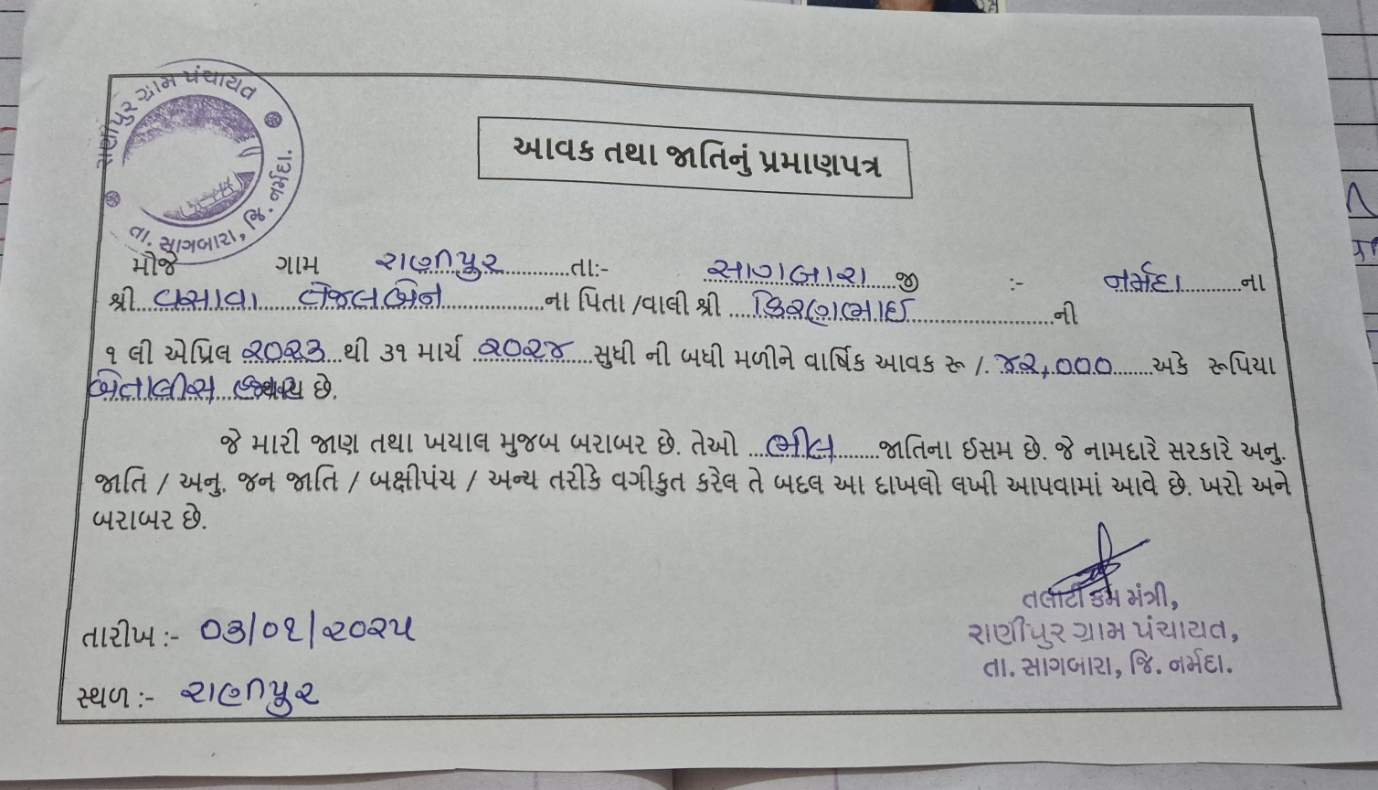 રાણીપુર ગ્રામ પંચાયત
તા. સાગબારા, જિ. નર્મદા.
આવક તથા જાતિનું પ્રમાણપત્ર
મોજે ગામ રાણીપુર તા:- સાગબારા જી :- નર્મદા ના
શ્રી વસાવા તેજલબેન ના પિતા /વાલી શ્રી કિરણભાઈ ની
૧ લી એપ્રિલ ૨૦૨૩ થી ૩૧ માર્ચ ૨૦૨૪ સુધી ની બધી મળીને વાર્ષિક આવક રૂ /. ૪૨,૦૦૦ અકે રૂપિયા
બેતાલીસ હજાર છે.
જે મારી જાણ તથા ખયાલ મુજબ બરાબર છે. તેઓ ભીલ જાતિના ઈસમ છે. જે નામદારે સરકારે અનુ.
જાતિ / અનુ. જન જાતિ / બક્ષીપંચ / અન્ય તરીકે વગીકુત કરેલ તે બદલ આ દાખલો લખી આપવામાં આવે છે. ખરો અને
બરાબર છે.
તલાટી કમ મંત્રી,
તારીખ :- ૦૩/૦૧/૨૦૨૫
રાણીપુર ગ્રામ પંચાયત,
તા. સાગબારા, જિ. નર્મદા.
સ્થળ :- રાણીપુર